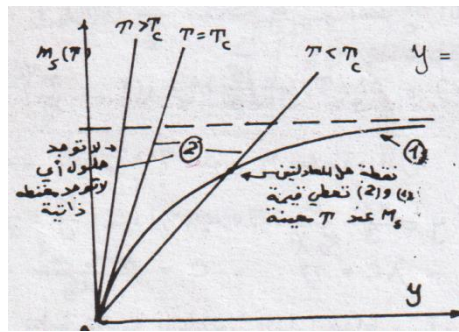 M_s(T)
T>T_c
T=T_c
T<T_c
y =
②
①
لا توجد
حلول أي
لا توجد مغنطة
ذاتية
نقطة حل المعادلتين
(1) و (2) تعطي قيمة
M_s عند T معينة
y